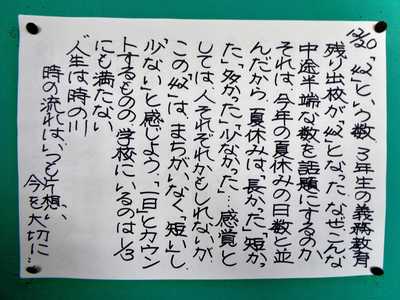 12/20「42」という数、3年生の義務教育
残り出校が「42」となった。なぜこんな
中途半端な数を話題にするのか
それは、今年の夏休みの日数と並
んだから。夏休みは「長かった」「短かっ
た」「多かった」「少なかった」…感覚と
しては、人それぞれかもしれないが、
この「42」は、まちがいなく「短い」し、
「少ない」と感じよう。「一日」とカウン
トするものの、学校にいるのは1/3
にも満たない
〝人生は時の川
時の流れは、いつも片想い〟
今を大切に…